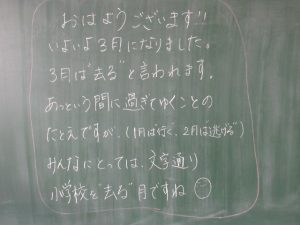 おはようございます!!
いよいよ3月になりました。
3月は"去る"と言われます。
あっという間に過ぎてゆくことの
たとえですが、(1月は行く、2月は逃げる)
みんなにとっては、文字通り
小学校を"去る"月ですね